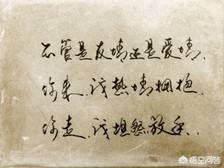 不管是友情还是爱情.
你来.我热情拥抱.
你走.我坦然放手..
悟空问答